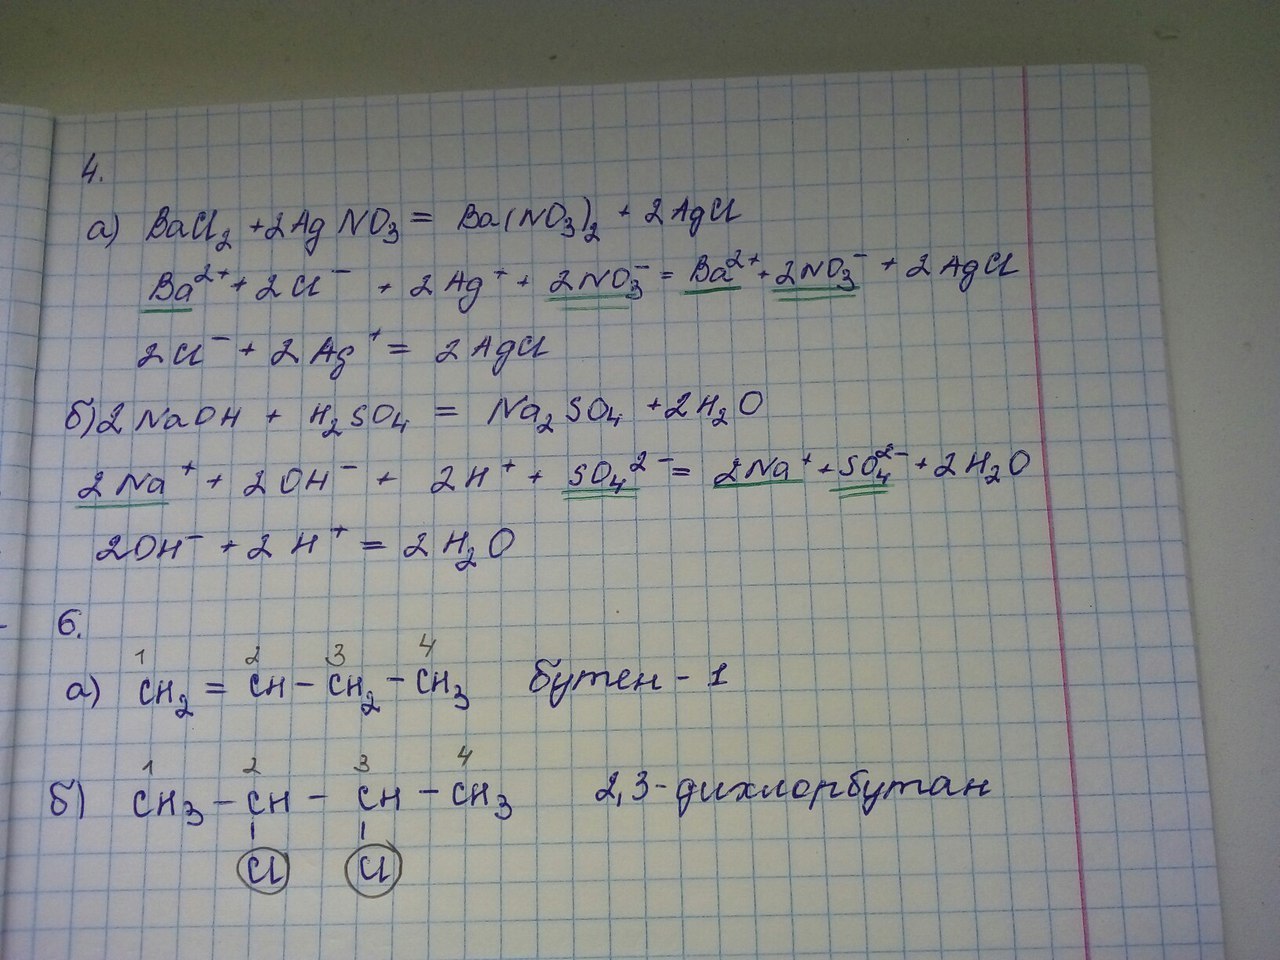 4.
а) BaCl₂ + 2AgNO₃ = Ba(NO₃)₂ + 2AgCl
Ba²⁺ + 2Cl⁻ + 2Ag⁺ + 2NO₃⁻ = Ba²⁺ + 2NO₃⁻ + 2AgCl
2Cl⁻ + 2Ag⁺ = 2AgCl
б) 2NaOH + H₂SO₄ = Na₂SO₄ + 2H₂O
2Na⁺ + 2OH⁻ + 2H⁺ + SO₄²⁻ = 2Na⁺ + SO₄²⁻ + 2H₂O
2OH⁻ + 2H⁺ = 2H₂O
6.
1 2 3 4
а) CH₂ = CH – CH₂ – CH₃ бутен - 1
1 2 3 4
б) CH₃ – CH – CH – CH₃ 2,3-дихлорбутан
Cl Cl